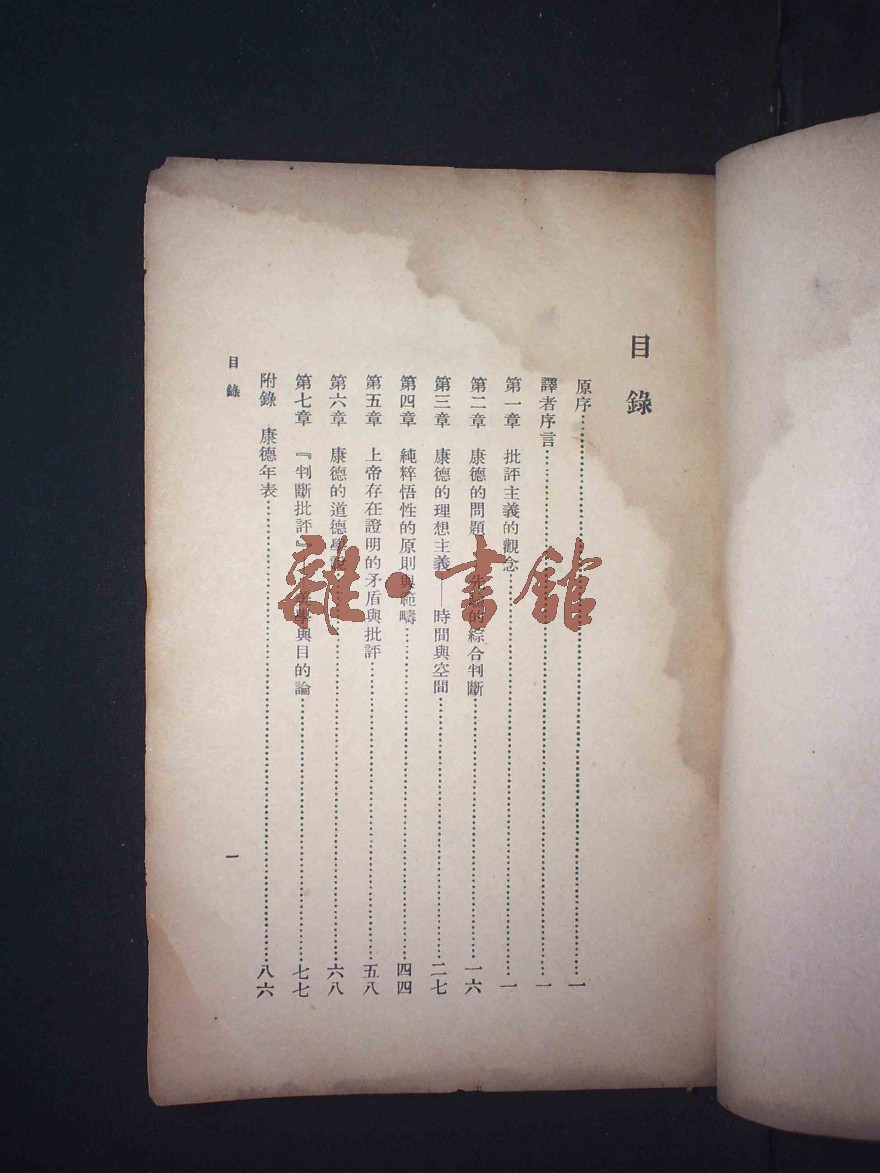 目錄
原序⋯⋯⋯⋯⋯⋯⋯⋯一
譯者序言⋯⋯⋯⋯⋯⋯⋯⋯一
第一章 批評主義的觀念⋯⋯⋯⋯⋯⋯⋯⋯一
第二章 康德的問題 的綜合判斷⋯⋯⋯⋯⋯⋯⋯⋯一六
第三章 康德的理想主義——時間與空間⋯⋯⋯⋯⋯⋯⋯⋯二七
第四章 純粹悟性的原則與範疇⋯⋯⋯⋯⋯⋯⋯⋯四四
第五章 上帝存在證明的矛盾與批評⋯⋯⋯⋯⋯⋯⋯⋯五八
第六章 康德的道德學說⋯⋯⋯⋯⋯⋯⋯⋯六八
第七章 『判斷批評』—美學與目的論⋯⋯⋯⋯⋯⋯⋯⋯七七
附錄 康德年表⋯⋯⋯⋯⋯⋯⋯⋯八六
目錄
一
雜·書館